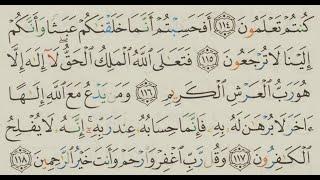 كُنتُمْ تَعْلَمُونَ ﴿١١٤﴾ أَفَحَسِبْتُمْ أَنَّمَا خَلَقْنَٰكُمْ عَبَثًا وَأَنَّكُمْ
إِلَيْنَا لَا تُرْجَعُونَ ﴿١١٥﴾ فَتَعَٰلَى ٱللَّهُ ٱلْمَلِكُ ٱلْحَقُّ ۖ لَآ إِلَٰهَ إِلَّا
هُوَ رَبُّ ٱلْعَرْشِ ٱلْكَرِيمِ ﴿١١٦﴾ وَمَن يَدْعُ مَعَ ٱللَّهِ إِلَٰهًا
ءَاخَرَ لَا بُرْهَٰنَ لَهُۥ بِهِۦ فَإِنَّمَا حِسَابُهُۥ عِندَ رَبِّهِۦٓ ۚ إِنَّهُۥ لَا يُفْلِحُ
ٱلْكَٰفِرُونَ ﴿١١٧﴾ وَقُل رَّبِّ ٱغْفِرْ وَٱرْحَمْ وَأَنتَ خَيْرُ ٱلرَّٰحِمِينَ ﴿١١٨﴾